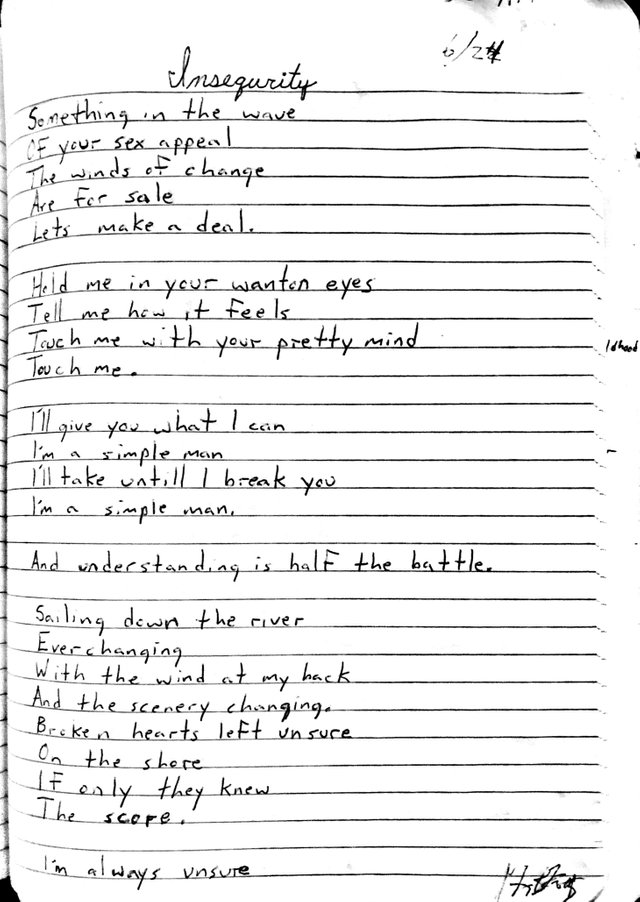 6/24
Insequrity
Something in the wave
Of your sex appeal
The winds of change
Are for sale
Lets make a deal.
Hold me in your wanton eyes
Tell me how it feels
Touch me with your pretty mind
Touch me.
I'll give you what I can
I'm a simple man
I'll take untill I break you
I'm a simple man.
And understanding is half the battle.
Sailing down the river
Everchanging
With the wind at my back
And the scenery changing.
Broken hearts left unsure
On the shore
If only they knew
The scope.
I'm always unsure